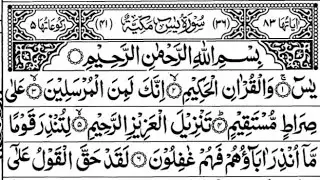 اٰیَاتُهَا ۸۳ (۳۶) سُوْرَةُ يٰسٓ مَكِّيَّةٌ (۴۱) رُكُوْعَاتُهَا ۵
بِسْمِ اللّٰهِ الرَّحْمٰنِ الرَّحِيْمِ
يٰسٓ ۝۱ وَالْقُرْاٰنِ الْحَكِيْمِ ۝۲ اِنَّكَ لَمِنَ الْمُرْسَلِيْنَ ۝۳ عَلٰى
صِرَاطٍ مُّسْتَقِيْمٍ ۝۴ تَنْزِيْلَ الْعَزِيْزِ الرَّحِيْمِ ۝۵ لِتُنْذِرَ قَوْمًا
مَّاۤ اُنْذِرَ اٰبَآؤُهُمْ فَهُمْ غٰفِلُوْنَ ۝۶ لَقَدْ حَقَّ الْقَوْلُ عَلٰۤى